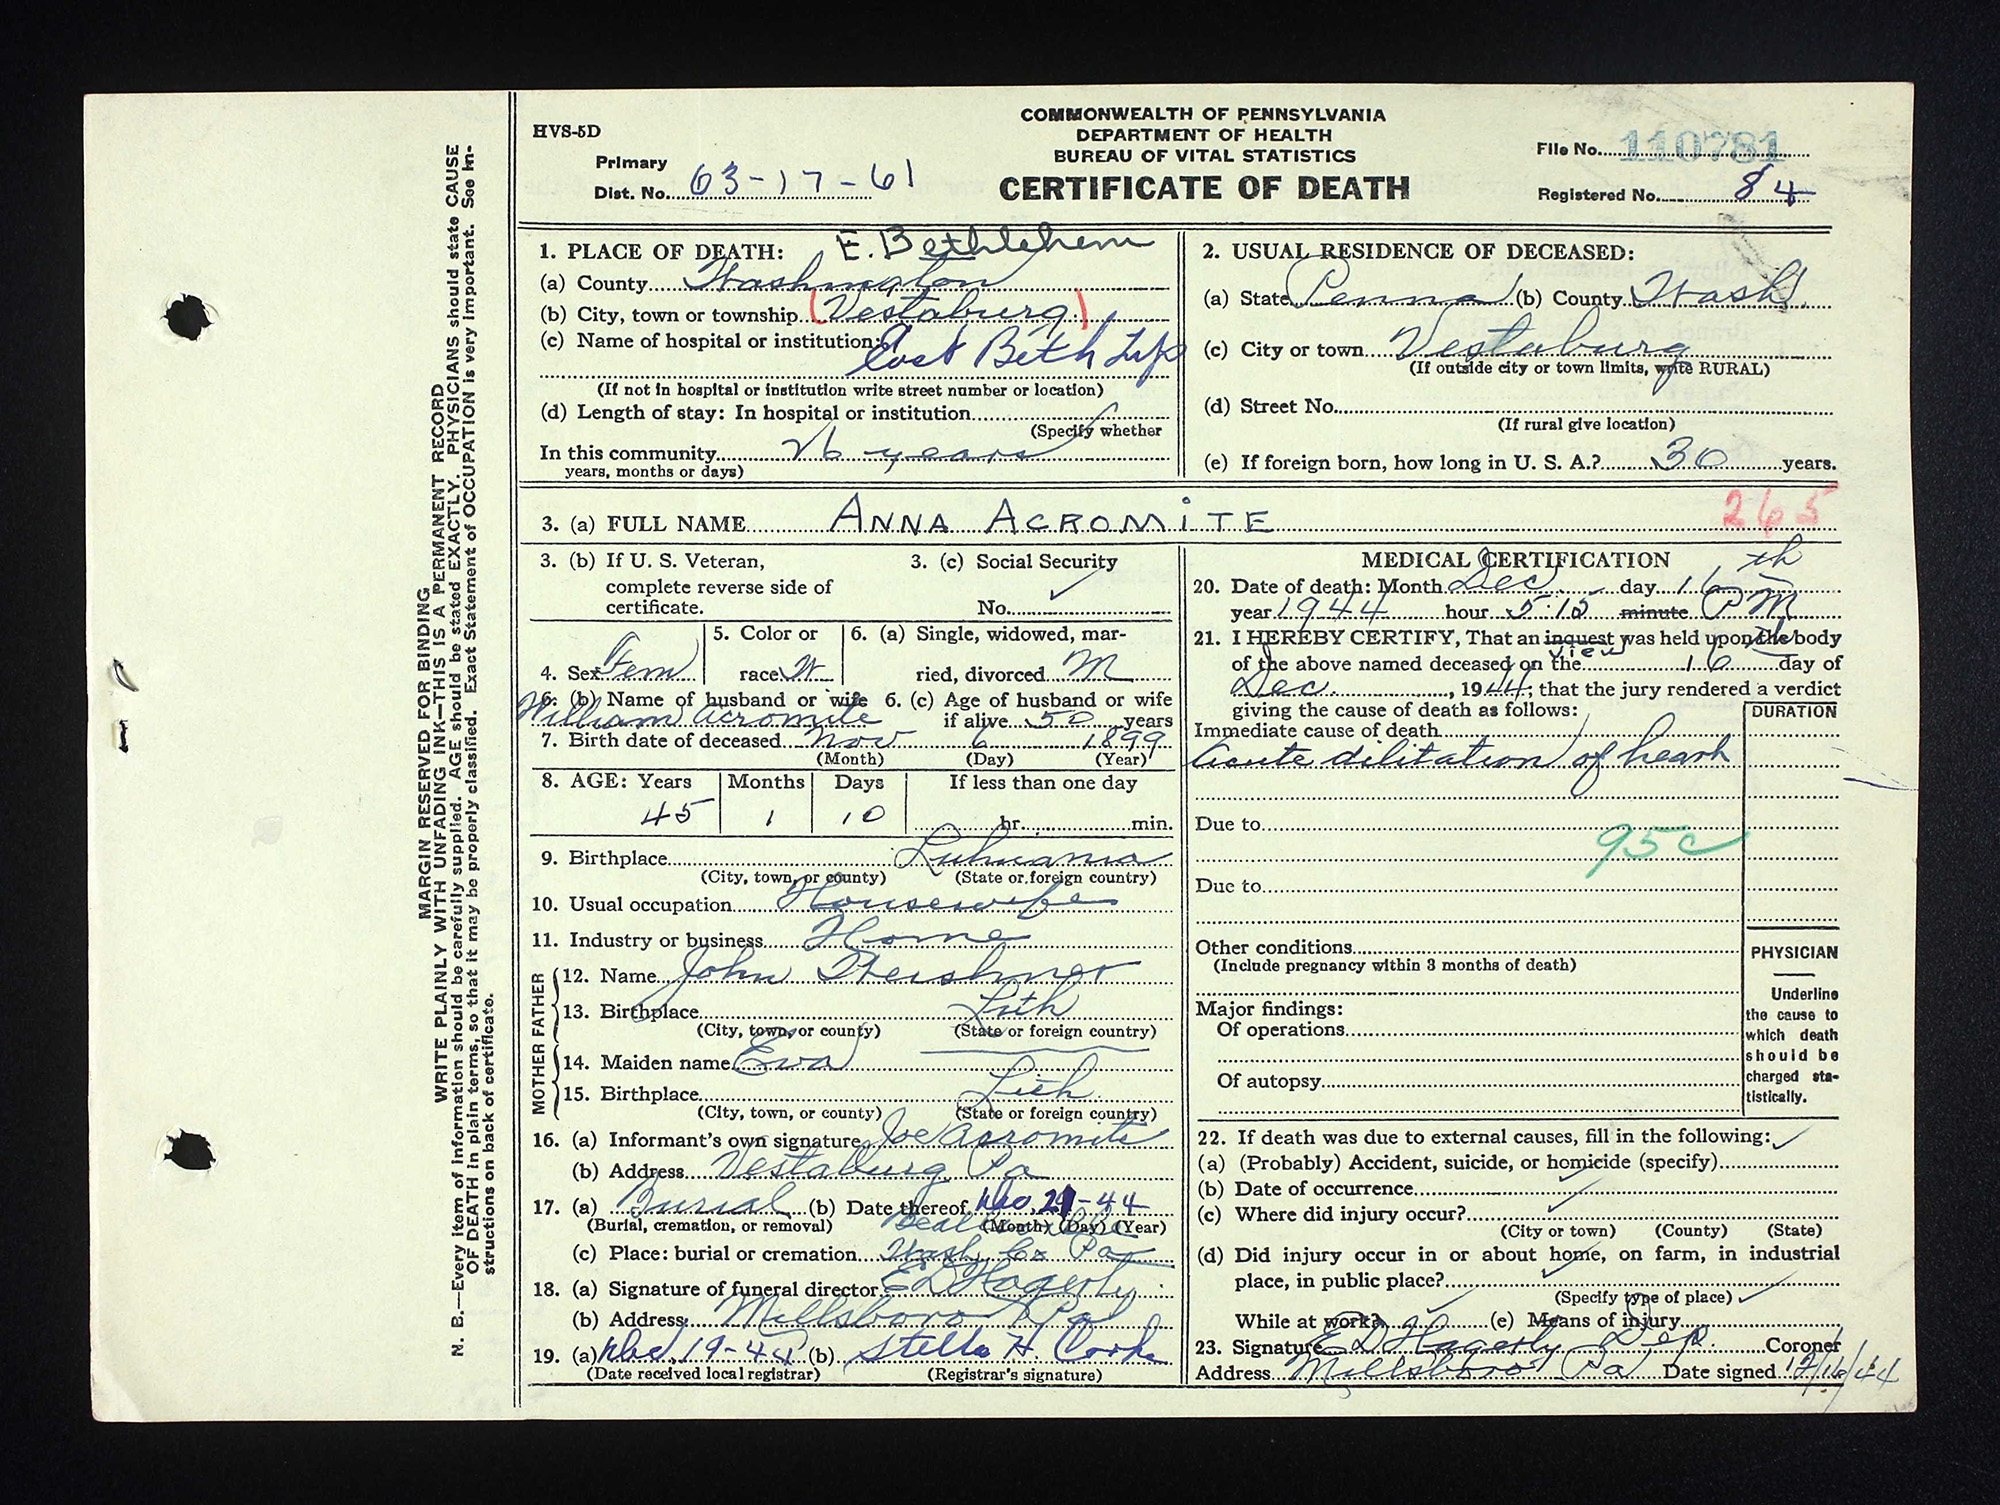 HVS-5D
COMMONWEALTH OF PENNSYLVANIA
DEPARTMENT OF HEALTH
BUREAU OF VITAL STATISTICS
CERTIFICATE OF DEATH
Primary
Dist. No. 63-17-61
File No. 110781
Registered No. 84
1. PLACE OF DEATH: E. Bethlehem
(a) County Washington
(b) City, town or township (Vestaburg)
(c) Name of hospital or institution: East Beth Twp
(If not in hospital or institution write street number or location)
(d) Length of stay: In hospital or institution
(Specify whether
In this community 26 years
years, months or days)
2. USUAL RESIDENCE OF DECEASED:
(a) State Penna (b) County Wash
(c) City or town Vestaburg
(If outside city or town limits, write RURAL)
(d) Street No.
(If rural give location)
(e) If foreign born, how long in U. S. A.? 30 years.
3. (a) FULL NAME ANNA ACROMITE 265
3. (b) If U. S. Veteran,
complete reverse side of
certificate.
3. (c) Social Security
No.
4. Sex Fem
5. Color or
race W
6. (a) Single, widowed, mar-
ried, divorced M
6. (b) Name of husband or wife
William Acromite
6. (c) Age of husband or wife
if alive 50 years
7. Birth date of deceased Nov 6 1899
(Month) (Day) (Year)
8. AGE: Years Months Days If less than one day
45 1 10 hr. min.
9. Birthplace Lithuania
(City, town, or county) (State or foreign country)
10. Usual occupation Housewife
11. Industry or business Home
FATHER
12. Name John
13. Birthplace Lith
(City, town, or county) (State or foreign country)
MOTHER
14. Maiden name Eva
15. Birthplace Lith.
(City, town, or county) (State or foreign country)
16. (a) Informant's own signature Joe Acromite
(b) Address Vestaburg Pa
17. (a) Burial (b) Date thereof Dec, 21-44
(Burial, cremation, or removal) (Month) (Day) (Year)
(c) Place: burial or cremation Wash Co Pa
18. (a) Signature of funeral director E D Hagerty
(b) Address Millsboro Pa
19. (a) Dec, 19-44 (b) Stella H. Cooke
(Date received local registrar) (Registrar's signature)
MEDICAL CERTIFICATION
20. Date of death: Month Dec. day 16th
year 1944 hour 5:15 minute P M
21. I HEREBY CERTIFY, That an inquest was held upon the body
view
of the above named deceased on the 16 day of
Dec., 1944; that the jury rendered a verdict
giving the cause of death as follows:
DURATION
Immediate cause of death
Acute dilitation of heart
Due to
95c
Due to
Other conditions
(Include pregnancy within 3 months of death)
Major findings:
Of operations
Of autopsy
PHYSICIAN
Underline
the cause to
which death
should be
charged sta-
tistically.
22. If death was due to external causes, fill in the following:
(a) (Probably) Accident, suicide, or homicide (specify)
(b) Date of occurrence
(c) Where did injury occur?
(City or town) (County) (State)
(d) Did injury occur in or about home, on farm, in industrial
place, in public place?
(Specify type of place)
While at work? (e) Means of injury
23. Signature E D Hagerty Dep. Coroner
Address Millsboro Pa Date signed 12/16/44
MARGIN RESERVED FOR BINDING
WRITE PLAINLY WITH UNFADING INK—THIS IS A PERMANENT RECORD
N. B.—Every item of information should be carefully supplied. AGE should be stated EXACTLY. PHYSICIANS should state CAUSE
OF DEATH in plain terms, so that it may be properly classified. Exact Statement of OCCUPATION is very important. See In-
structions on back of certificate.